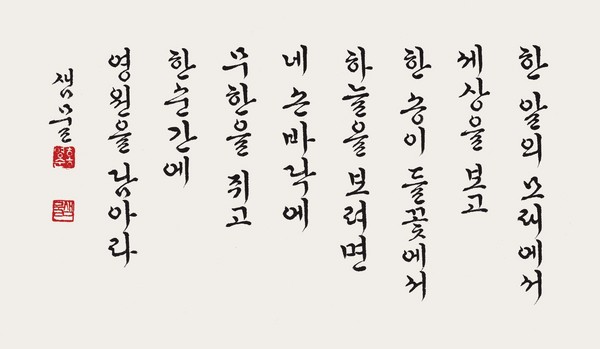 한 알의 모래에서
세상을 보고
한 송이 들꽃에서
하늘을 보려면
네 손바닥에
무한을 쥐고
한 순간에
영원을 담아라
샘물